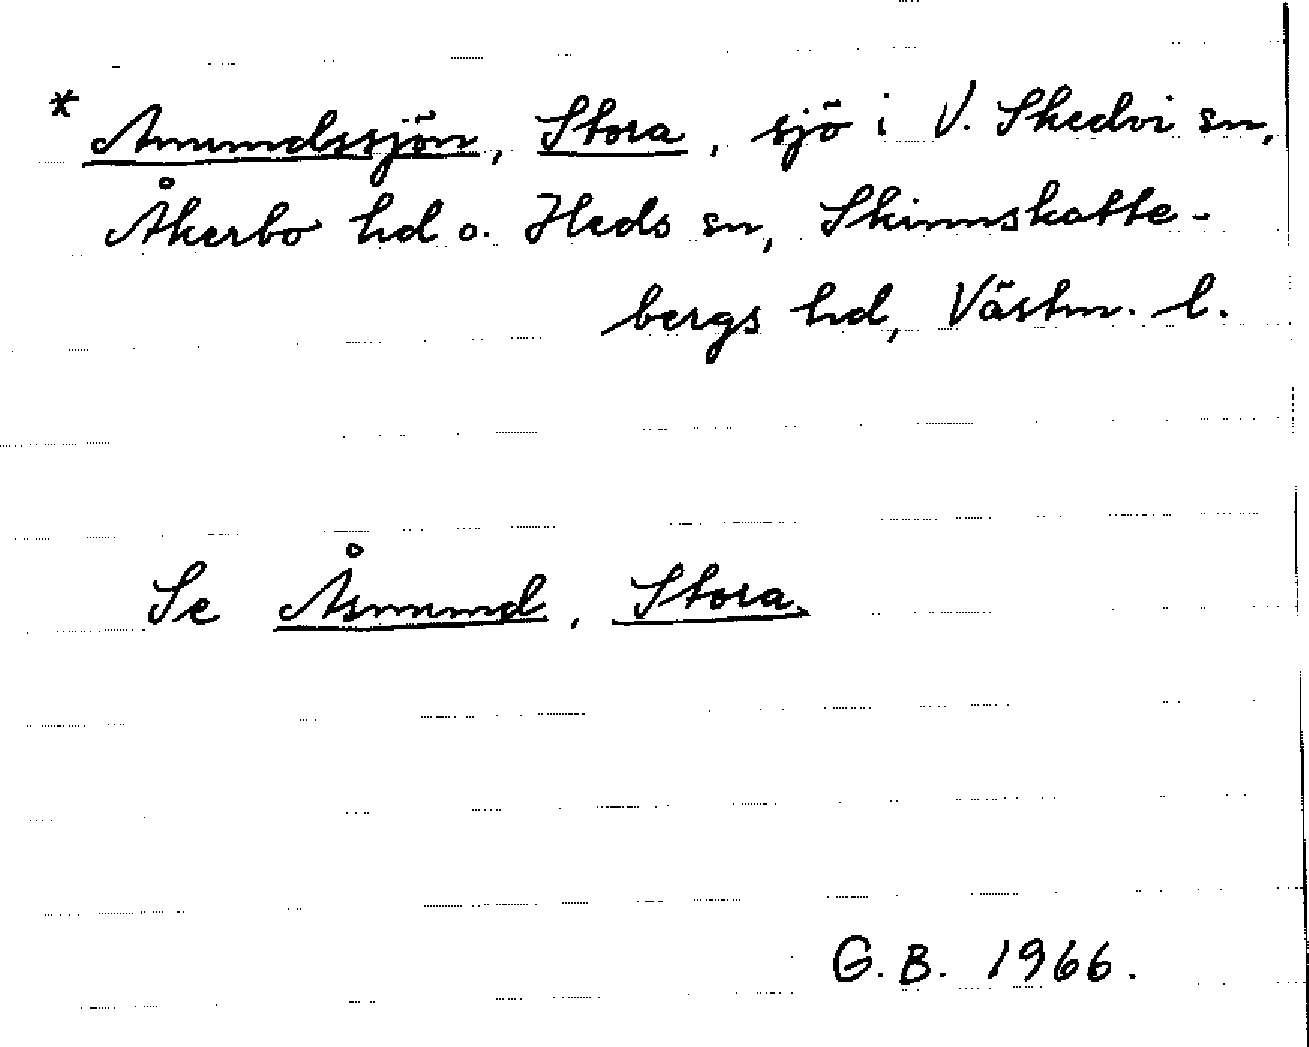 * Amundssjön, Stora, sjö i V. Skedvi sn,
Åkerbo hd o. Heds sn, Skinnskatte-
bergs hd, Västm. l.
Se Åsmund, Stora.
G.B. 1966.